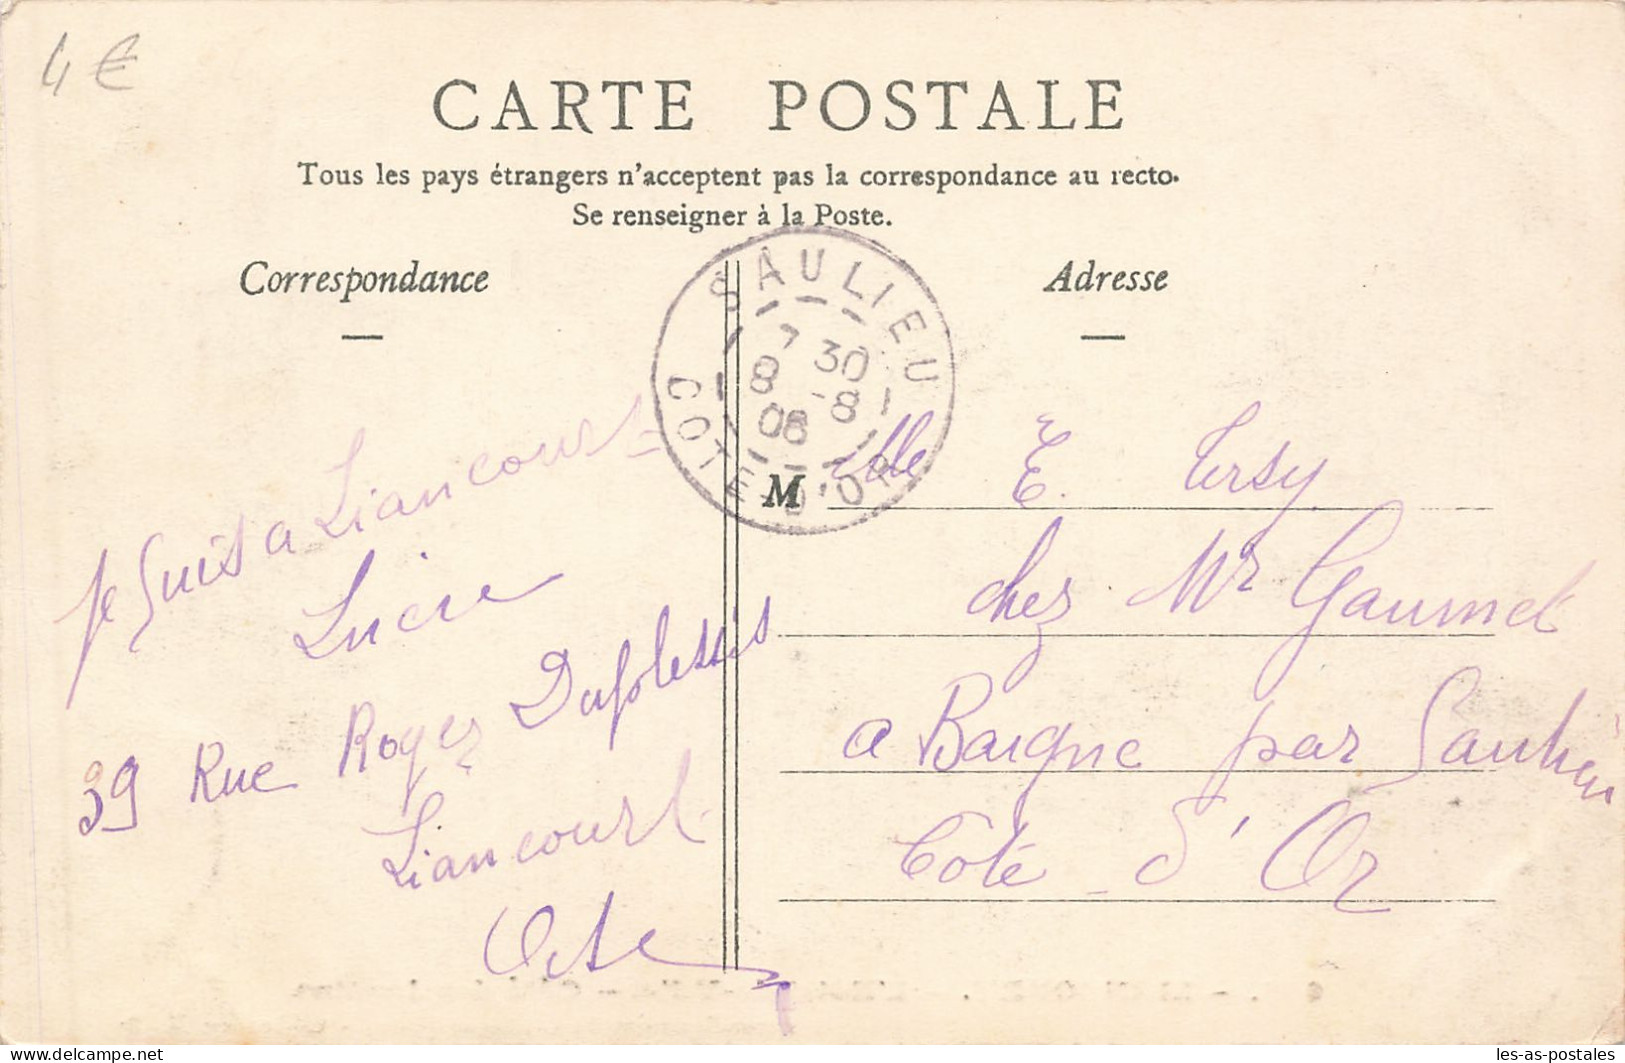 4 €
CARTE POSTALE
Tous les pays étrangers n'acceptent pas la correspondance au recto.
Se renseigner à la Poste.
Correspondance
Adresse
SAULIEU
7 30
8 -8
06
COTE-D'OR
Je suis a Liancourt
Lucie
39 Rue Roger Duplessis
Liancourt
Oise
Melle E. Tersy
chez Mr Gaumet
a Baigne par Saulieu
Côte d'Or
delcampe.net
les-as-postales